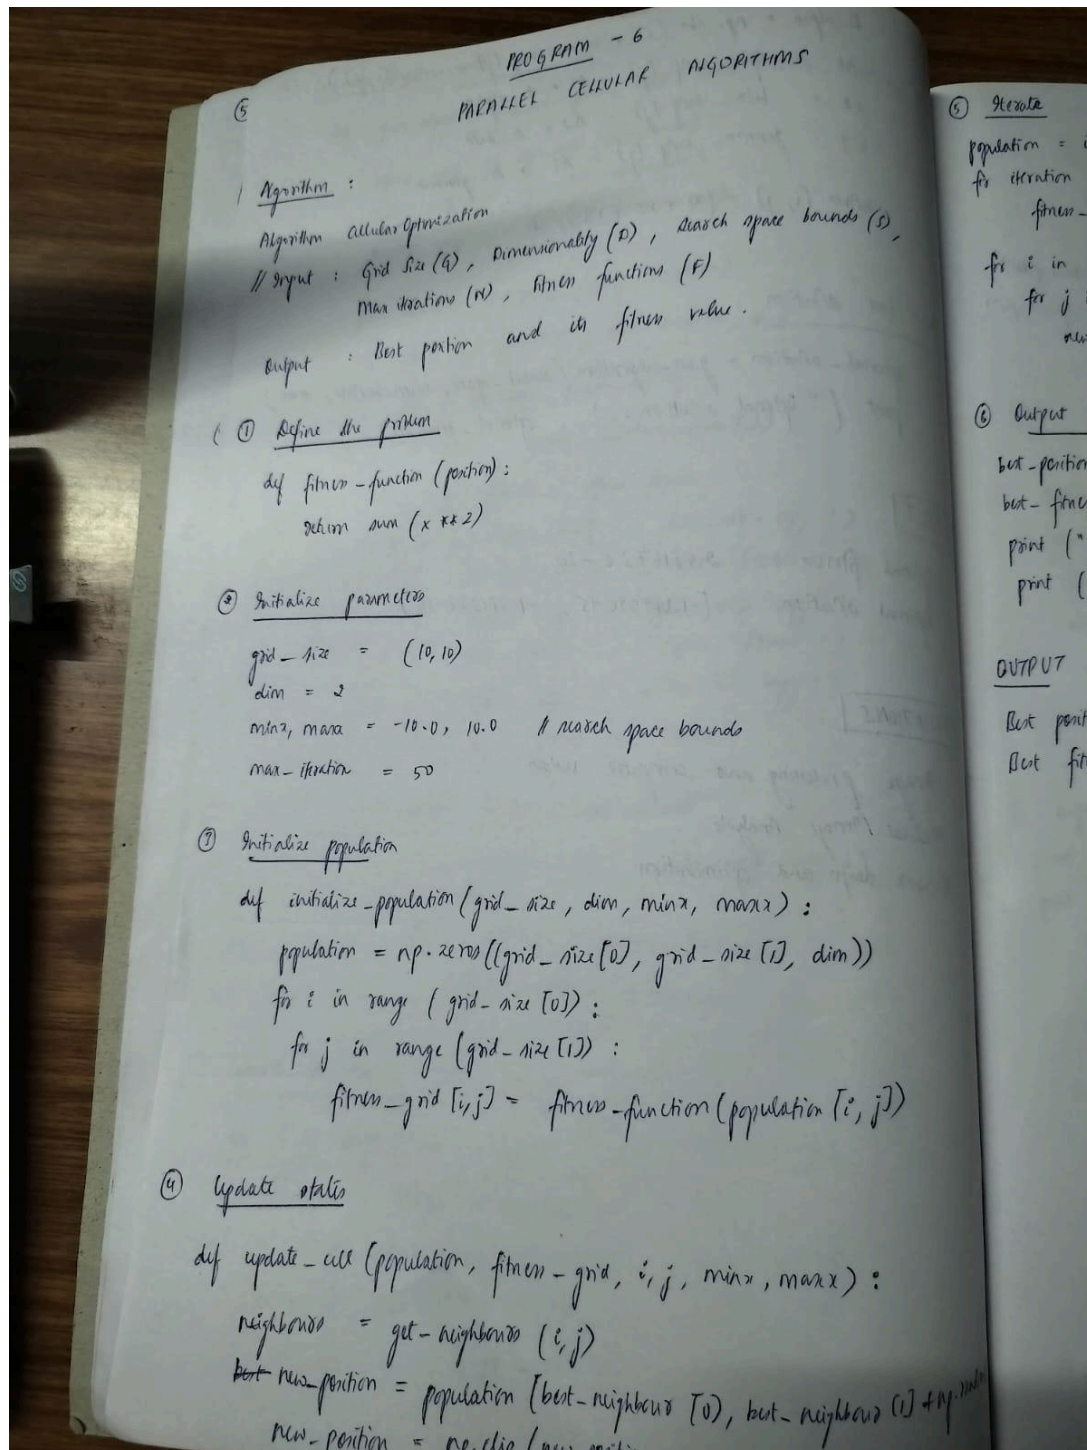 PROGRAM - 6
⑤
PARALLEL CELLULAR ALGORITHMS
Algorithm :
Algorithm Cellular Optimization
// Input : Grid Size (G), Dimensionality (D), search space bounds (S),
Max iterations (N), Fitness functions (F)
Output : Best position and its fitness value.
① Define the problem
def fitness-function (position) :
return sum (x ** 2)
② Initialize parameters
grid_size = (10, 10)
dim = 2
minx, maxx = -10.0, 10.0 // search space bounds
max-iteration = 50
③ Initialize population
def initialize-population (grid_size, dim, minx, maxx) :
population = np.zeros((grid_size[0], grid_size[1], dim))
for i in range (grid-size [0]) :
for j in range (grid-size [1]) :
fitness_grid [i,j] = fitness-function (population [i, j])
④ Update states
def update_cell (population, fitness-grid, i, j, minx, maxx) :
neighbours = get-neighbours (i, j)
best new_position = population [best-neighbour [0], best-neighbour [1] + np.
new_position = np.clip (new
⑤ Iterate
population =
for iteration
fitness-
for i in
for j
⑥ Output
best-position
best-
print ("
print (
OUTPUT
Best
Best